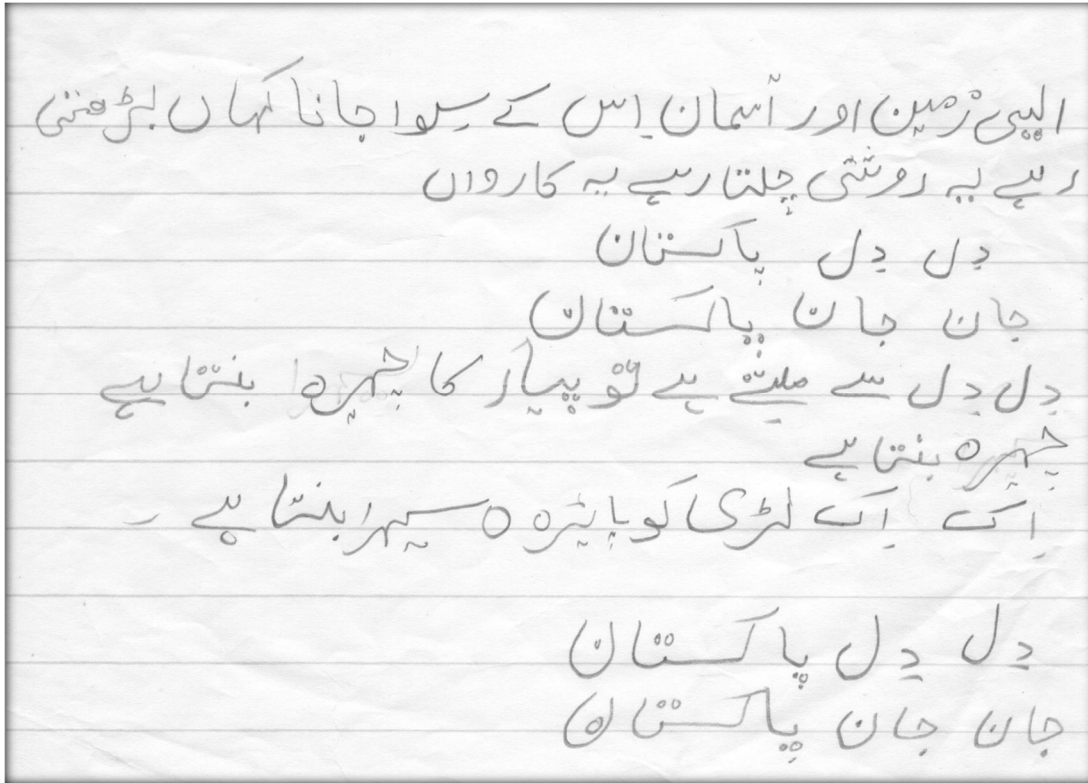 ایسی زمین اور آسمان اِس کے سِوا جانا کہاں بڑھتی
رہے یہ روشنی چلتا رہے یہ کارواں
دِل دِل پاکستان
جان جان پاکستان
دِل دِل سے ملتے ہے تو پیار کا چہرہ بنتا ہے
چہرہ بنتا ہے
اِک اِک لڑی کو سہرا بنتا ہے ۔
دِل دِل پاکستان
جان جان پاکستان